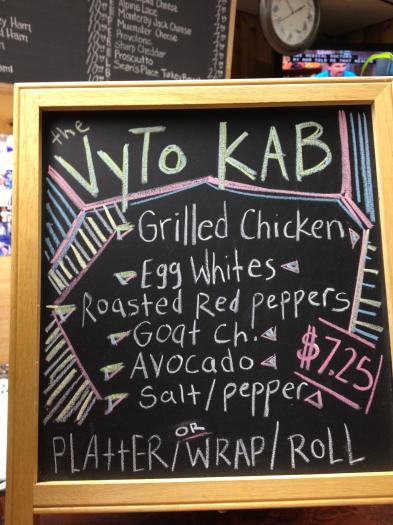 Ham
Alpine Lace
Monterey Jack Cheese
Muenster Cheese
Provolone
Sharp Cheddar
Prosciutto
Sean's Place Turkey
the
VyTo KAB
Grilled Chicken
Egg Whites
Roasted Red peppers
Goat Ch.
Avocado
$7.25
Salt/pepper
OR
PLAttER/WRAP/ROLL